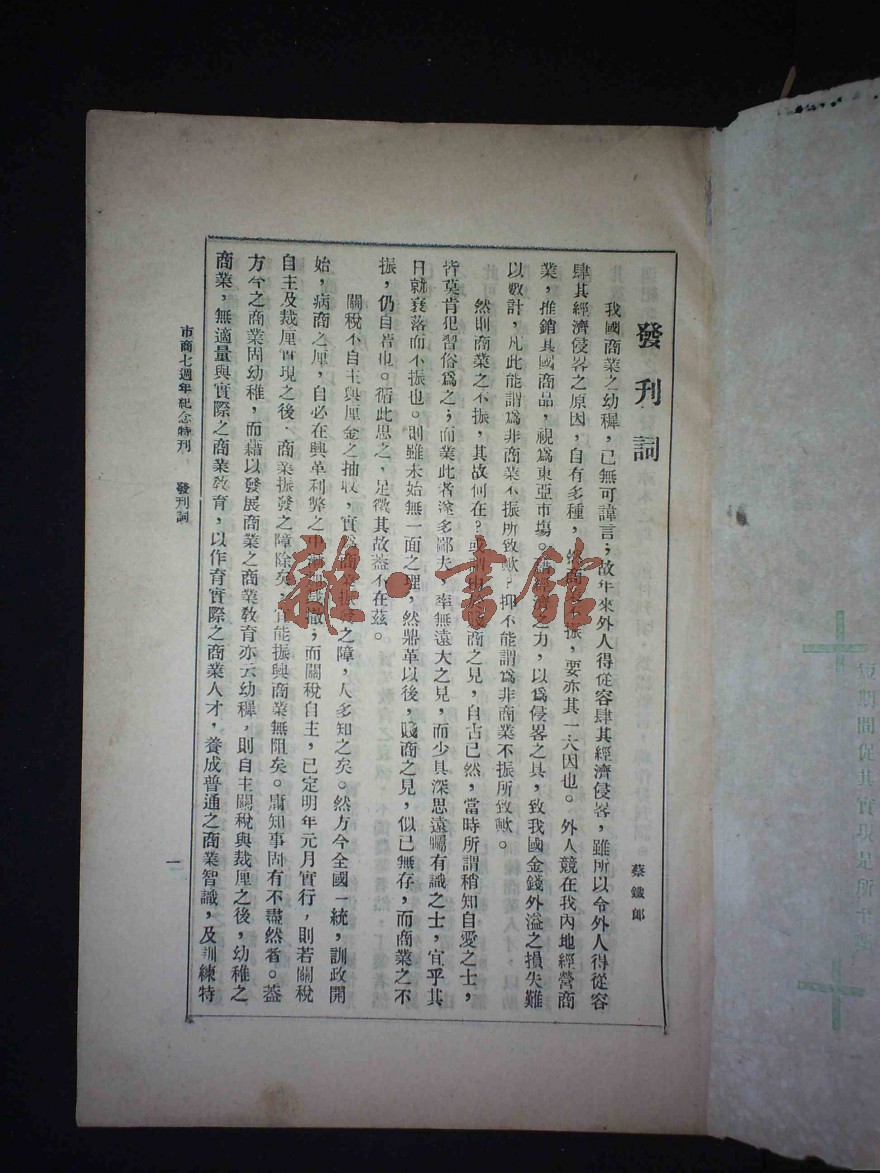 發刊詞
蔡鐵郎
我國商業之幼穉，已無可諱言；故年來外人得從容肆其經濟侵畧，雖所以令外人得從容
肆其經濟侵畧之原因，自有多種，然商業不振，要亦其一大因也。外人競在我內地經營商
業，推銷其國商品，視爲東亞市塲。經濟之力，以爲侵畧之具，致我國金錢外溢之損失難
以數計，凡此能謂爲非商業不振所致歟？抑不能謂爲非商業不振所致歟。
然則商業之不振，其故何在？或謂商之見，自古已然，當時所謂稍知自愛之士，
皆莫肯犯習俗爲之；而業此者遂多鄙夫，率無遠大之見，而少具深思遠矚有識之士，宜乎其
日就衰落而不振也。則雖未始無一面之理，然鼎革以後，賤商之見，似已無存，而商業之不
振，仍自若也。循此思之，足徵其故蓋不在茲。
關稅不自主與厘金之抽收，實爲商業振之障，人多知之矣。然方今全國一統，訓政開
始，病商之厘，自必在興革利弊之中裁撤；而關稅自主，已定明年元月實行，則若關稅
自主及裁厘實現之後，商業振發之障除矣，宜能振興商業無阻矣。庸知事固有不盡然者。蓋
方今之商業固幼稚，而藉以發展商業之商業敎育亦云幼穉，則自主關稅與裁厘之後，幼稚之
商業，無適量與實際之商業敎育，以作育實際之商業人才，養成普通之商業智識，及訓練特
市商七週年紀念特刊 發刊詞
一
雜·書館